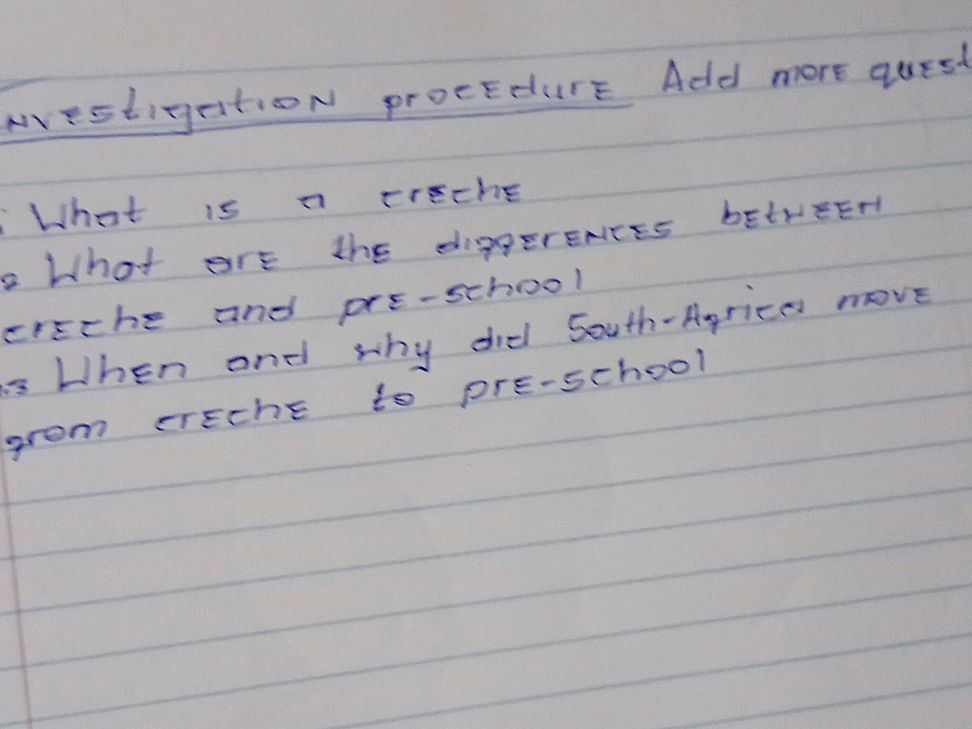 nvestigation procedure Add more quest
: What is a creche
2 What are the differences between
creche and pre-school
3 When and why did South-Africa move
from creche to pre-school